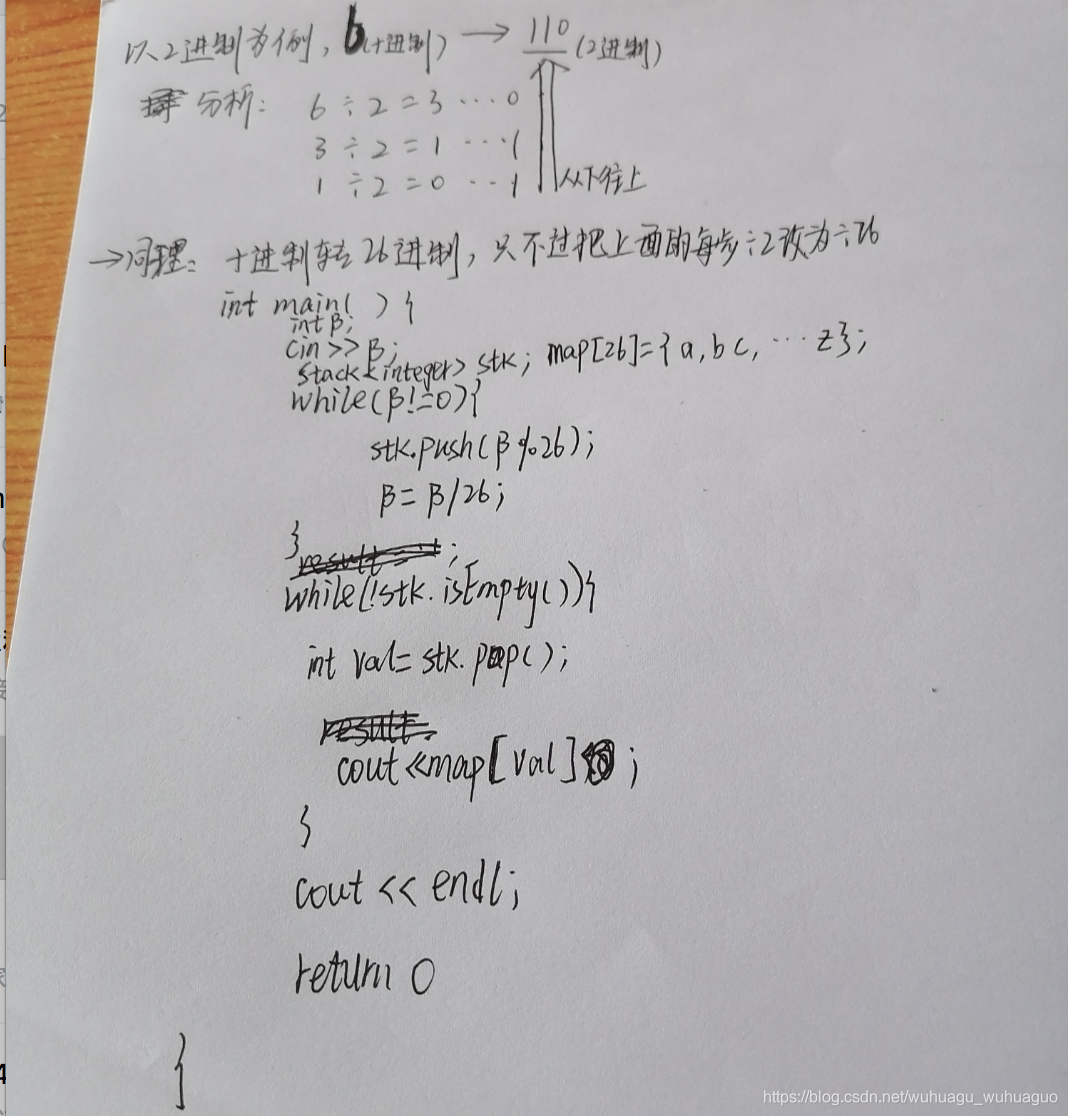 以2进制为例, 6(十进制) → 110 (2进制)
分析: 6 ÷ 2 = 3 ··· 0
3 ÷ 2 = 1 ··· 1
1 ÷ 2 = 0 ··· 1 从下往上
→同理: 十进制转26进制, 只不过把上面的每步÷2改为÷26
int main( ) {
int β;
cin >> β;
stack<integer> stk; map[26]={a,b c, ··· z};
while(β!=0){
stk.push(β%26);
β= β/26;
}
;
while(!stk.isEmpty()){
int val= stk.pop();
cout <<map[val] ;
}
cout << endl;
return 0
}
https://blog.csdn.net/wuhuagu_wuhuaguo